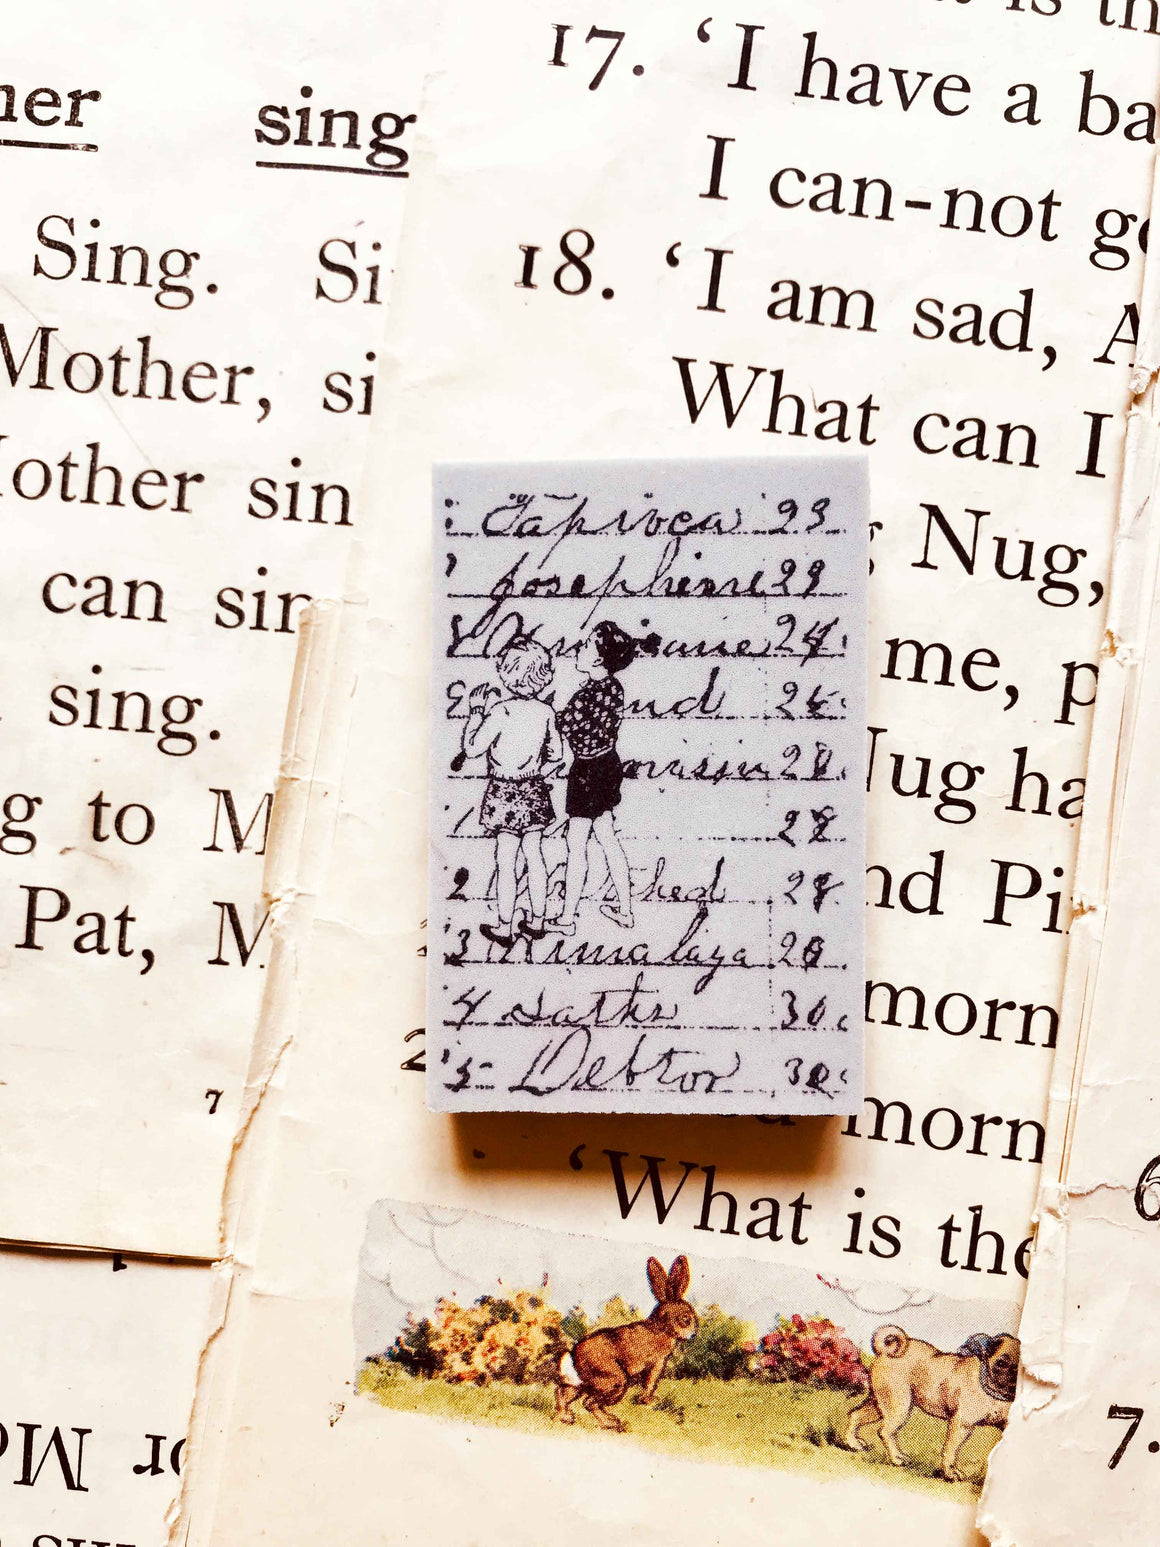 sing
Sing. Si
Mother, si
other sin
can sin
sing.
g to M
Pat, M
7
17. ‘I have a ba
I can-not go
18. ‘I am sad, A
What can I
Nug,
me, p
Nug ha
nd Pi
morn
morn
‘What is the
Tapioca 23
Josephine 29
24
nd 26
28
28
2 shed 28
'3 Himalaya 28
'4 30
'5 Debtor 30
6
7.
or M